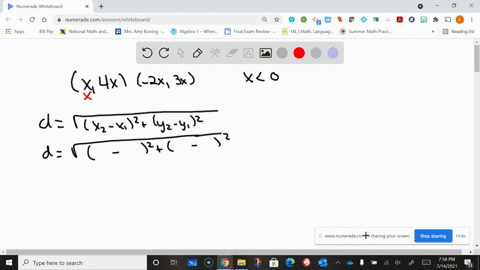 Numerade Whiteboard
numerade.com/answers/whiteboard/
Apps
Bill Pay
National Math and...
Mrs. Amy Koning -...
Algebra 1 - When...
Final Exam Review -...
IXL | Math, Languag...
Summer Math Pract...
Reading list
(x, 4x) (-2x, 3x) x < 0
x
d = √(x₂-x₁)²+(y₂-y₁)²
d = √( - )²+( - )²
www.numerade.com is sharing your screen.
Stop sharing
Hide
Type here to search
7:58 PM
7/14/2021